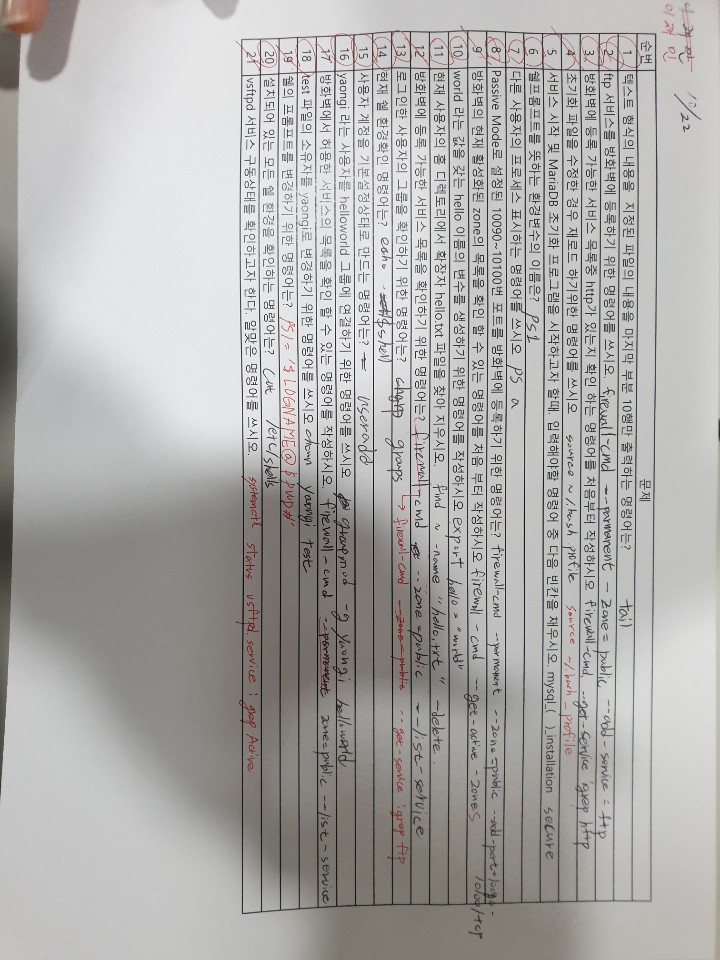 11/22
순번 문제
1 텍스트 형식의 내용을 지정된 파일의 내용을 마지막 부분 10행만 출력하는 명령어는? tail
2 ftp 서비스를 방화벽에 등록하기 위한 명령어를 쓰시오. firewall-cmd --permanent - zone=public --add-service=ftp
3 방화벽에 등록 가능한 서비스 목록중 http가 있는지 확인 하는 명령어를 처음부터 작성하시오. firewall-cmd --get-service | grep http
4 초기화 파일을 수정한 경우 재로드 하기위한 명령어를 쓰시오 source ~/bash profile source ~/bash_profile
5 서비스 시작 및 MariaDB 초기화 프로그램을 시작하고자 할때. 입력해야할 명령어 중 다음 빈칸을 채우시오. mysql_( )_installation secure
6 쉘프롬프트를 뜻하는 환경변수의 이름은? PS1
7 다른 사용자의 프로세스 표시하는 명령어를 쓰시오 PS a
8 Passive Mode로 설정된 10090~10100번 포트를 방화벽에 등록하기 위한 명령어는? firewall-cmd --permanent --zone=public --add-port=10090-10100/tcp
9 방화벽의 현재 활성화된 zone의 목록을 확인 할 수 있는 명령어를 처음 부터 작성하시오 firewall-cmd --get-active-zones
10 world 라는 값을 갖는 hello 이름의 변수를 생성하기 위한 명령어를 작성하시오 export hello="world"
11 현재 사용자의 홈 디렉토리에서 확장자 hello.txt 파일을 찾아 지우시오. find ~ -name "hello.txt" -delete.
12 방화벽에 등록 가능한 서비스 목록을 확인하기 위한 명령어는? firewall-cmd --zone=public --list-service
13 로그인한 사용자의 그룹을 확인하기 위한 명령어는? groups
↳ firewall-cmd --zone=public --get-service | grep ftp
14 현재 쉘 환경확인 명령어는? echo
15 사용자 계정을 기본설정상태로 만드는 명령어는? useradd
16 yaongi 라는 사용자를 helloworld 그룹에 연결하기 위한 명령어를 쓰시오 groupmod -g yaongi helloworld
17 방화벽에서 허용한 서비스의 목록을 확인 할 수 있는 명령어를 작성하시오. firewall-cmd --permanent zone=public --list-service
18 test 파일의 소유자를 yaongi로 변경하기 위한 명령어를 쓰시오 chown yaongi test
19 쉘의 프롬프트를 변경하기 위한 명령어는? PS1='$LOGNAME@$PWD#'
20 설치되어 있는 모든 쉘 환경을 확인하는 명령어는? cat /etc/shells
21 vsftpd 서비스 구동상태를 확인하고자 한다. 알맞은 명령어를 쓰시오. systemctl status vsftpd.service | grep Active